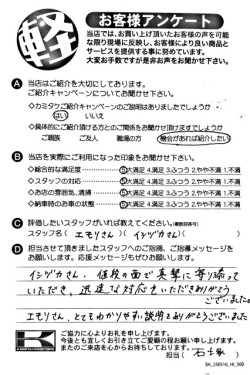 軽
お客様アンケート
当店では、お買い上げ頂いたお客様の声を可能
な限り現場に反映し、お客様により良い商品と
サービスを提供する事に努めています。
大変お手数ですが是非お声をお聞かせ下さい。
A 当店はご紹介を大切にしております。
ご紹介キャンペーンについてお聞かせ下さい。
◇カミタケご紹介キャンペーンのご説明はありましたでしょうか
はい いいえ
◇具体的にご紹介頂ける方とのご関係をお聞かせ頂けますでしょうか
ご親族 ご友人 職場の方 機会があれば紹介したい
B 当店を実際にご利用になった印象をお聞かせ下さい。
◇総合的な満足度 5.大満足 4.満足 3.ふつう 2.やや不満 1.不満
◇スタッフの対応 5.大満足 4.満足 3.ふつう 2.やや不満 1.不満
◇お店の雰囲気、清掃 5.大満足 4.満足 3.ふつう 2.やや不満 1.不満
◇納車時のお車の状態 5.大満足 4.満足 3.ふつう 2.やや不満 1.不満
C 評価したいスタッフがいれば教えてください。(複数回答可)
スタッフ名( エモリさん )( イシヅカさん )
D 担当させて頂きましたスタッフへのご指摘、ご指導メッセージを
お願いします。応援メッセージもぜひお願いします。
イシヅカさん、値段の面で真摯に寄り添って
いただき、迅速な対応をいただきありがとう
ございました。
エモリさん、とてもわかりやすい説明ありがとうございました
K ご協力に心よりお礼を申し上げます。
今後とも宜しくお引き立てご愛顧の程お願い申し上げます。
またのご来店を心からお待ちしております。
担当( 石塚 )
SH_250516_HI_500